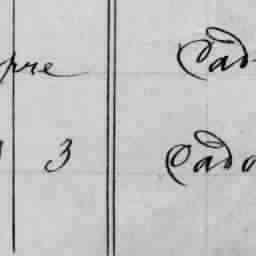 pre Cad
3 Cado